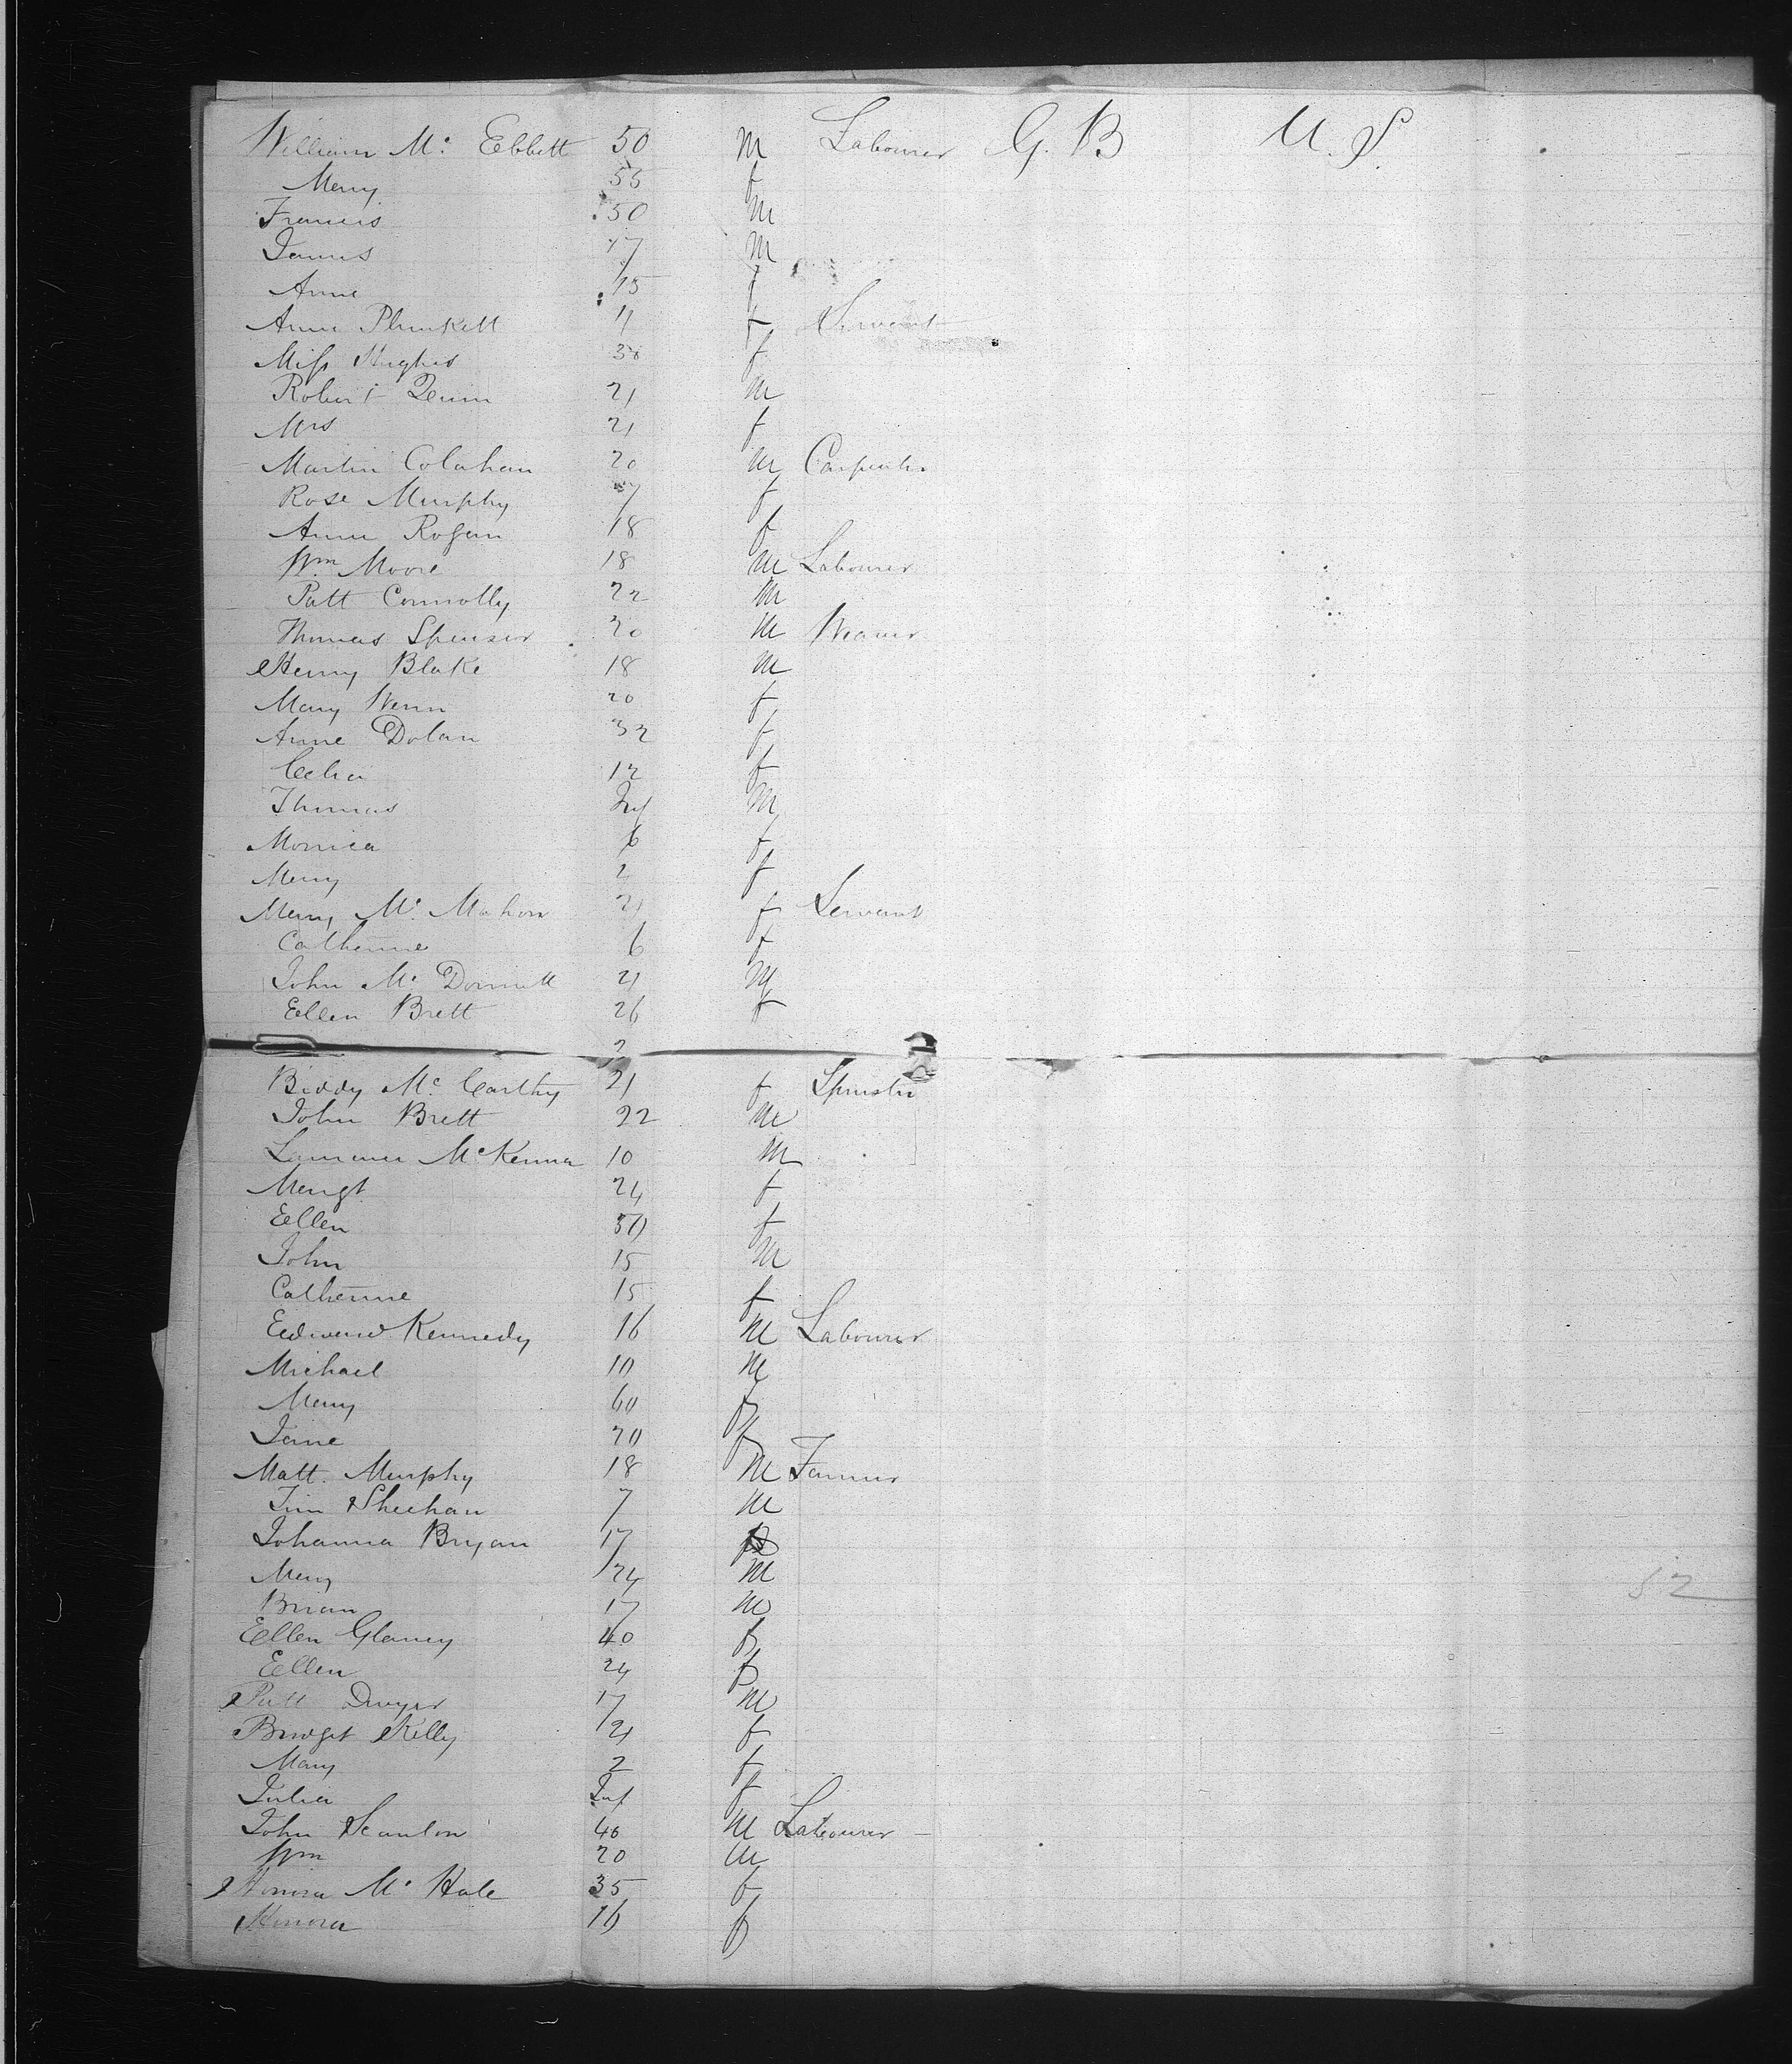 William Mc Ebbett 50 m Labourer G. B U. S.
Mary 55 f
Francis 50 m
James 17 m
Anne 15 f
Anne Plunkett 11 f Servant
Miss Hughes 30 f
Robert Quinn 21 m
Mrs 21 f
Martin Colahan 20 m Carpenter
Rose Murphy 7 f
Anne Rogan 18 f
Wm Moore 18 m Labourer
Patt Connolly 22 m
Thomas Spenser 20 m Weaver
Henry Blake 18 m
Mary 20 f
Anne Dolan 32 f
Celia 12 f
Thomas Inf m
Monica 6 f
Mary 2 f
Mary Mc Mahon 21 f Servant
Catherine 6 f
John Mc Donnell 21 m
Ellen Brett 26 f
Biddy Mc Carthy 21 f Spinster
John Brett 22 m
Lawrence McKenna 10 m
Margt 24 f
Ellen 50 f
John 15 m
Catherine 15 f
Edward Kennedy 16 m Labourer
Michael 10 m
Mary 60 f
Jane 20 f
Matt. Murphy 18 m Farmer
Tim Sheehan 7 m
Johanna Bryan 17 f
Mary 24 m
Brian 17 m
Ellen Glancy 40 f
Ellen 24 f
Patt Dwyer 17 m
Bridget Kelly 21 f
Mary 2 f
Julia Inf f
John Scanlon 40 m Labourer
Wm 20 m
Honora Mc Hale 35 f
Honora 16 f
52